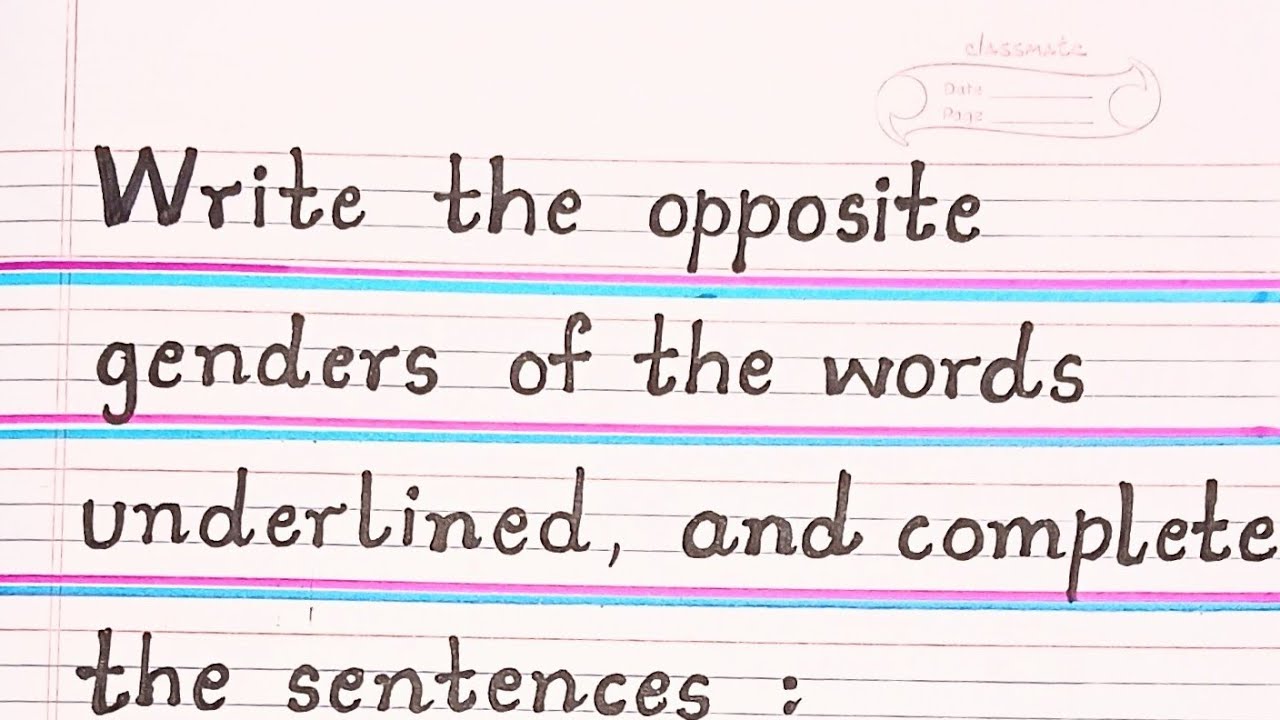 classmate
Date
Page
Write the opposite
genders of the words
underlined, and complete
the sentences :